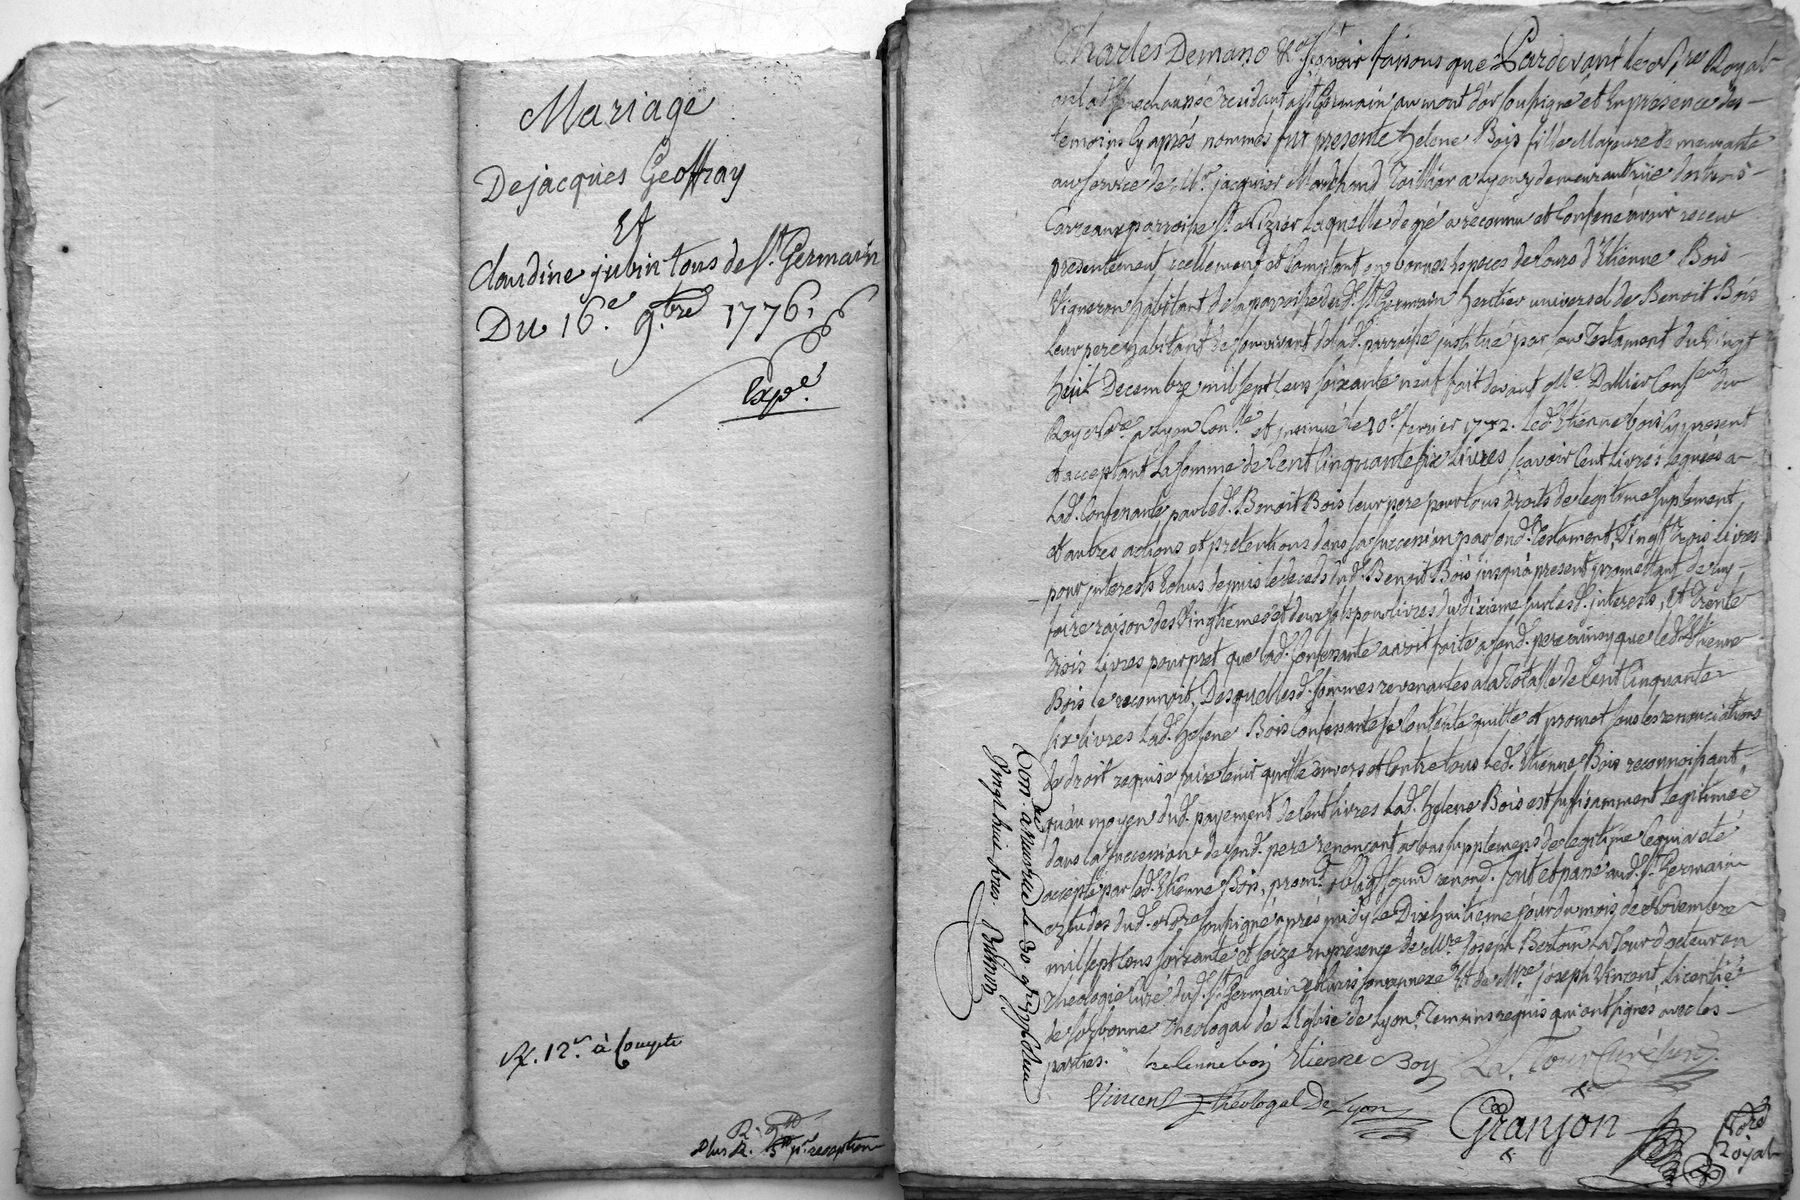 Mariage
De jacques Geoffray
Et
Claudine jubin tous de St. Germain
Du 16e. 9bre 1776.
Expe.
R. 12 à Compte
R. 9
Plus R. 3 pr. reception
Charles Demano &a sçavoir faisons que Pardevant le Nre Royal
en lad. senechaussée residant a St Germain au mont d'or soussigné et En presence des
temoins Cy aprés nommés fut presente helene Bois fille Majeure demeurante
au service de Mr. jacquier Marchand Toillier a Lyon y demeurant rüe des trois
Carreaux parroisse St. Nizier Laquelle de gré a reconnu et Confessé avoir receu
presentement reellement et Comptant en bonnes Especes de Cours d'Etienne Bois
Vigneron habitant de la parroisse dud. St Germain heritier universel de Benoit Bois
Leur pere habitant de son vivant de lad. parroisse institué par son Testament du Vingt
huit Decembre mil sept Cens soixante neuf fait devant Me. Dallier Conser. du
Roy Nre. a Lyon Conlle. et insinué le 20e. fevrier 1772. Led. Etienne bois Cy present
et acceptant La somme de Cent Cinquante six Livres sçavoir Cent Livres leguées a
Lad. Confessante par led. Benoit Bois leur pere pour tous droits de legitime suplement
et autres actions et pretentions dans sa succession par sond. Testament, Vingt trois Livres
pour interests Echus depuis le deceds dud. Benoit Bois jusqu'a present promettant de luy
faire raison des Vingtiemes et deux sols pour livres du dixieme sur lesd. interests, Et Trente
trois Livres pour pret que lad. Confessante avoit faite a sond. pere ainsy que led. Etienne
Bois le reconnoit, Desquelles d. sommes revenantes a la Totalle de Cent Cinquante
six livres Lad. helene Bois Confessante se Contente quitte et promet sous les renonciations
de droit requise faire tenir quitte envers et Contre tous Led. Etienne Bois reconnoissant
qu'au moyen dud. payement de Cent livres Lad. helene Bois est suffisamment Legitimée
dans la succession de sond. pere renonçant a tous supplemens de legitime ce qui a eté
accepté par led. Etienne Bois, promt. obligt. soumt. renond. fait et passé aud. St. Germain
Etudes dud. Nre soussigné aprés midy Le Dixhuitieme jour du mois de Novembre
mil sept Cens soixante et seize En presence de Mre. joseph Bertoin La Tour docteur en
Theologie Curé dud. St. Germain et Curis son annexe Et de Mre joseph Vincent, Licentié
de sorbonne Theologal de L'Eglise de Lyon, Temoins requis qui ont signés avec les
parties.
helenne boy Etienne Boy La Tour Curé
Vincent Théologal De Lyon
Granjon
Nre
Royal